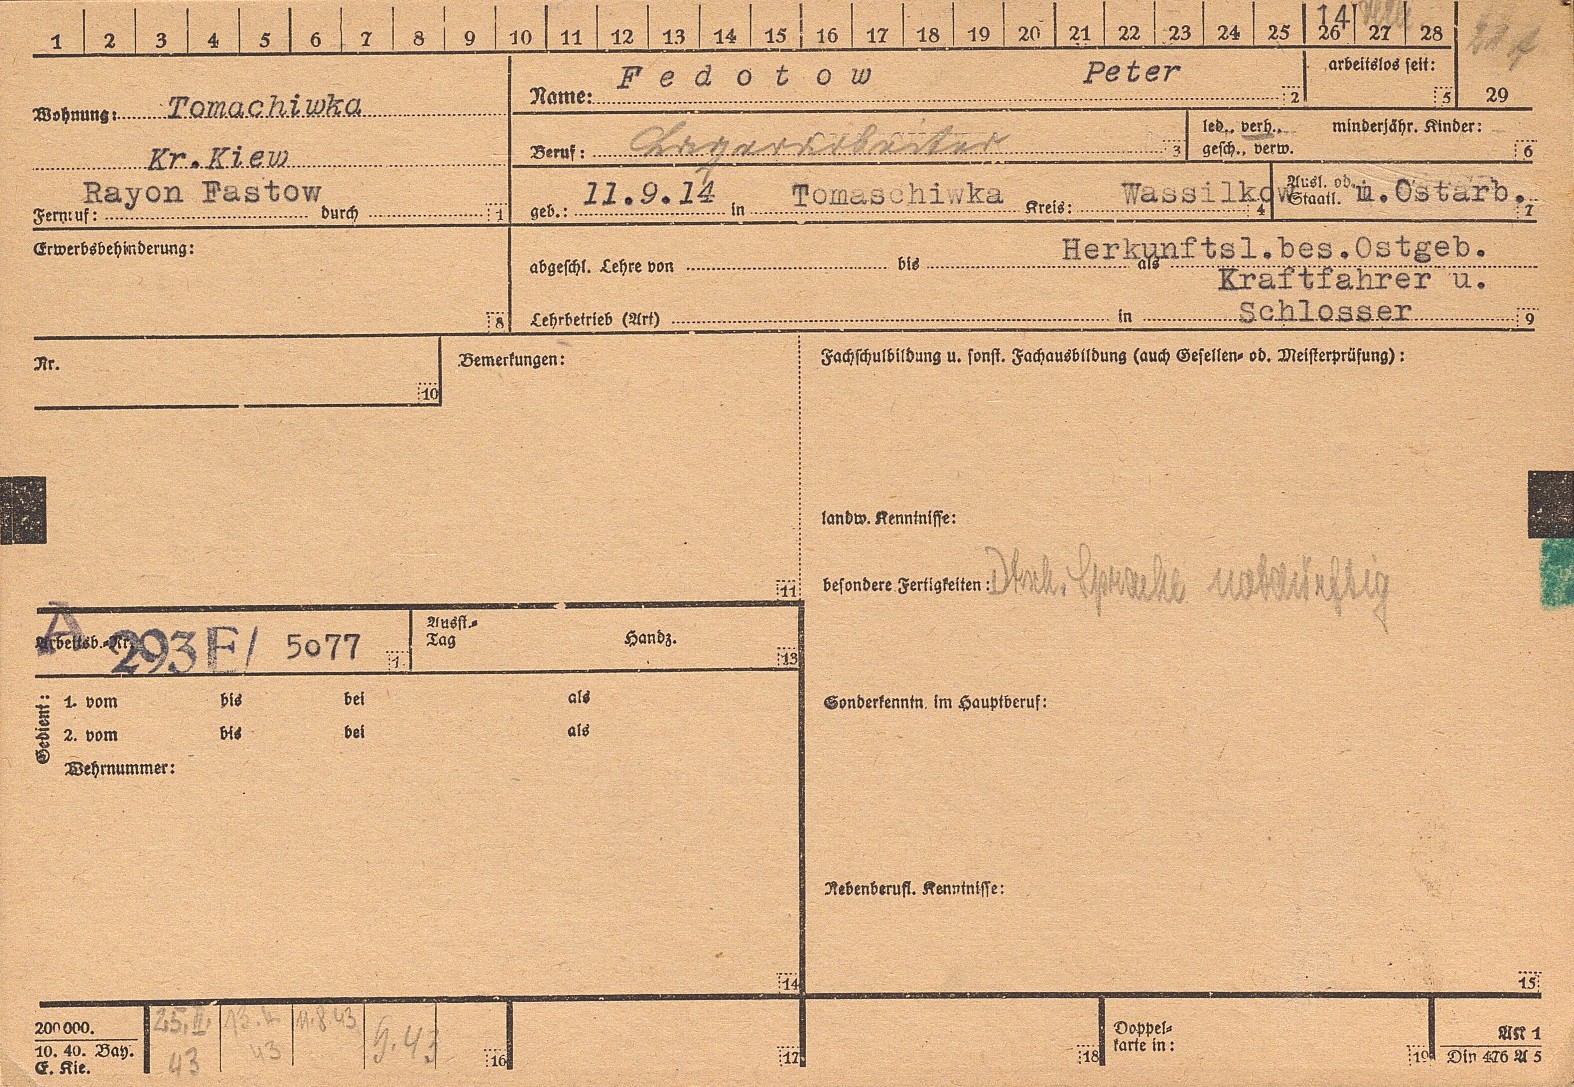 1 2 3 4 5 6 7 8 9 10 11 12 13 14 15 16 17 18 19 20 21 22 23 24 25 26 27 28
14
Name: Fedotow Peter 2
arbeitslos seit: 5
29
Wohnung: Tomachiwka
Kr.Kiew
Rayon Fastow
Fernruf: durch 1
Beruf: Lagerarbeiter 3
led., verh., minderjähr. Kinder:
gesch., verw. 6
geb.: 11.9.14 in Tomaschiwka Kreis: Wassilkow 4
Ausl. od. Staatl. u.Ostarb. 7
Erwerbsbehinderung: 8
Herkunftsl.bes.Ostgeb.
abgeschl. Lehre von bis als
Kraftfahrer u.
Lehrbetrieb (Art) in Schlosser 9
Nr. 10
Bemerkungen: 11
Fachschulbildung u. sonst. Fachausbildung (auch Gesellen- od. Meisterprüfung):
landw. Kenntnisse:
besondere Fertigkeiten: Dtsch. Sprache notdürftig
A
Arbeitsb.-Nr. 293 E/ 5077 1
Ausst.-
Tag Handz. 13
Gedient:
1. vom bis bei als
2. vom bis bei als
Wehrnummer:
14
Sonderkenntn. im Hauptberuf:
Nebenberufl. Kenntnisse:
15
200 000.
10. 40. Bay.
E. Kie.
25.II.
43
43
11.8.43
9.43
16 17 18
Doppel-
karte in: 19
AK 1
Din 476 A 5